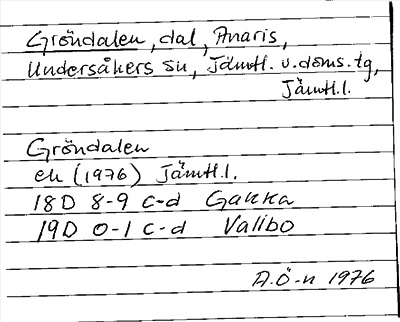 Gröndalen, dal, Anaris,
Undersåkers sn, Jämtl. v. doms. tg,
Jämtl. l.
Gröndalen
ek (1976) Jämtl. l.
18D 8-9 c-d Gakka
19D 0-1 c-d Vallbo
A.Ö-n 1976